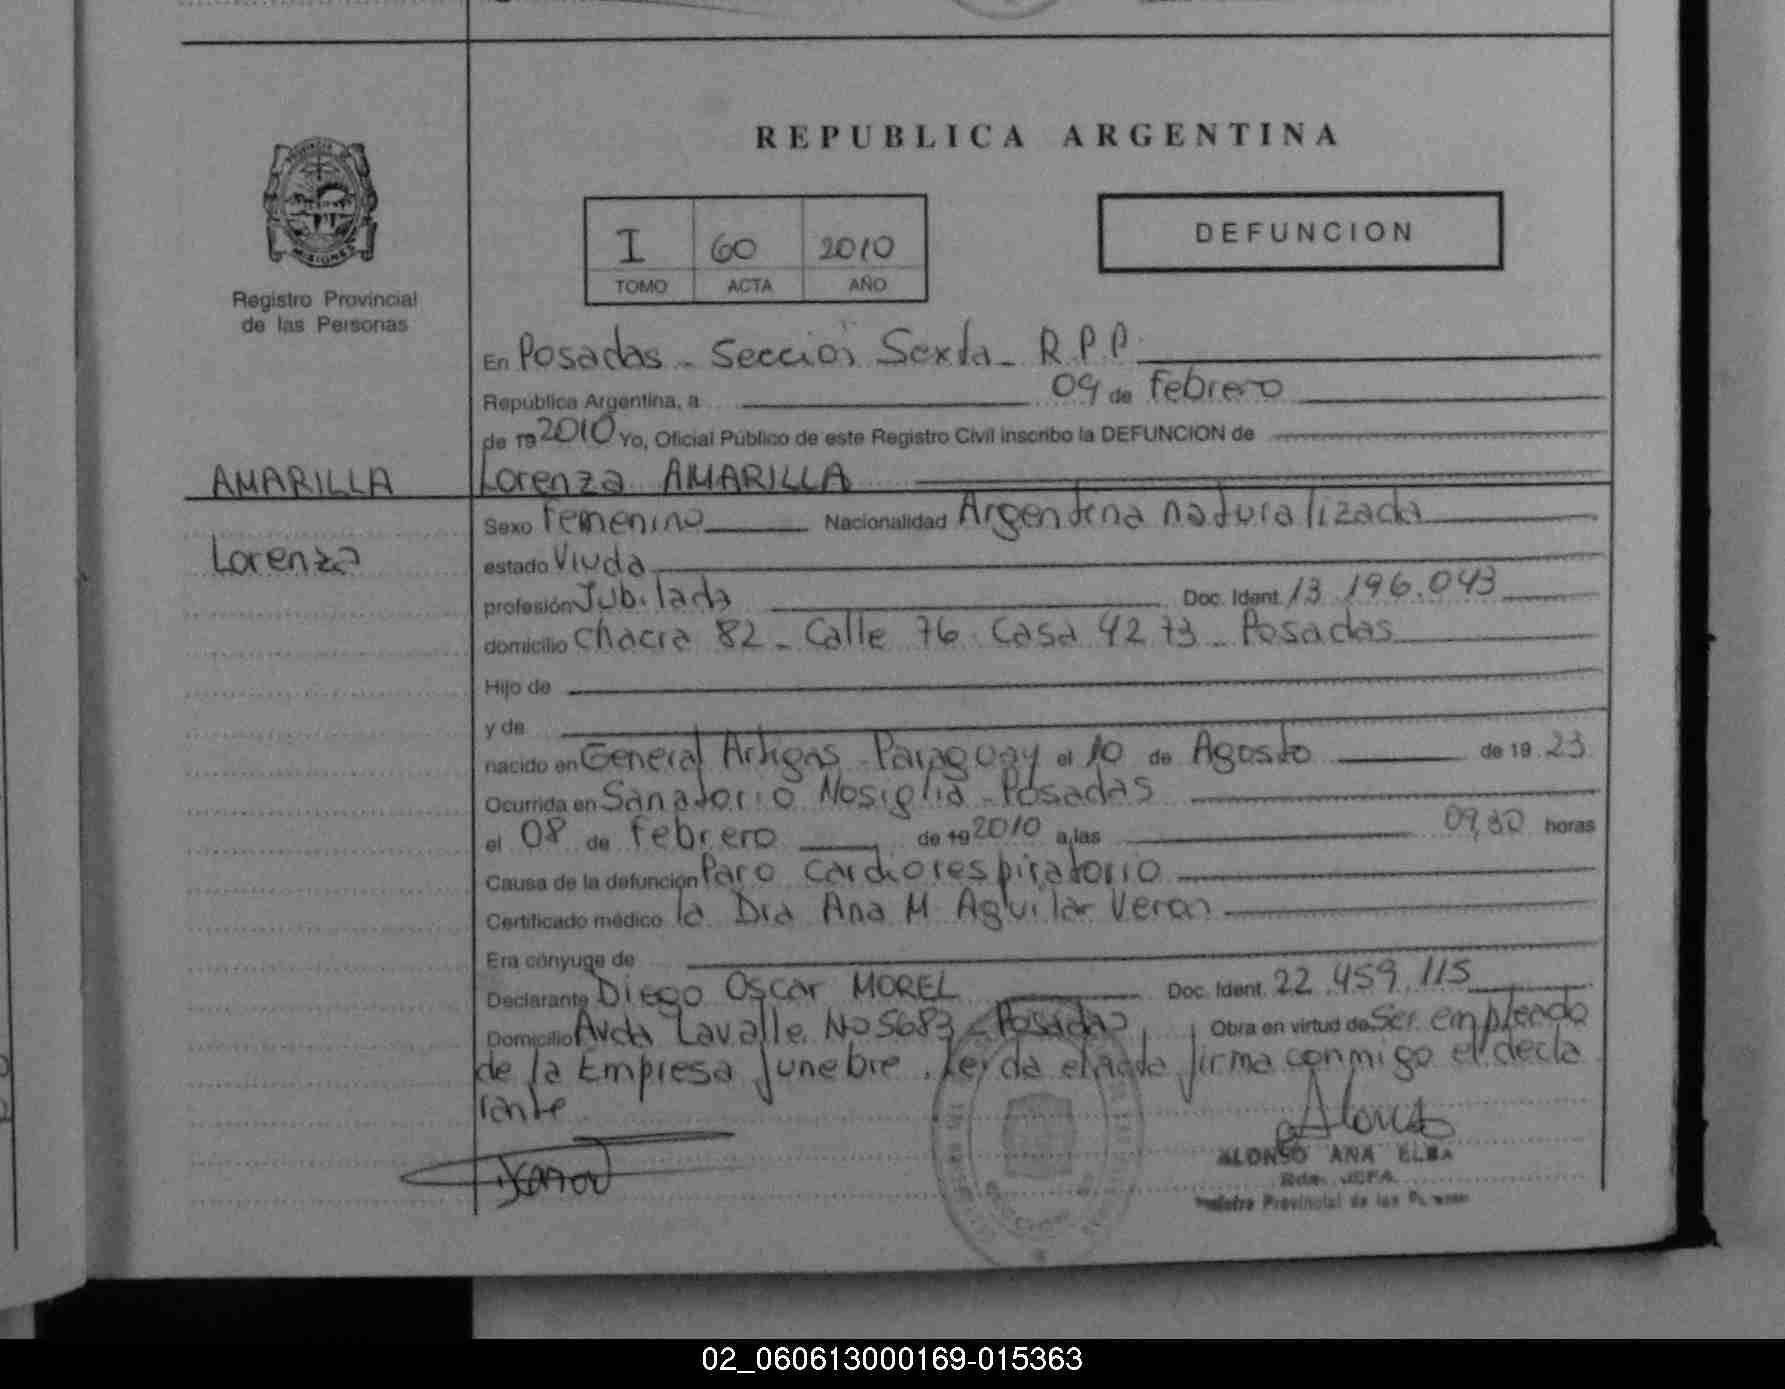 REPUBLICA ARGENTINA
I 60 2010
TOMO ACTA AÑO
DEFUNCION
MISIONES
Registro Provincial
de las Personas
En Posadas - Sección Sexta - R.P.P.
República Argentina, a 09 de Febrero
de 19 2010 Yo, Oficial Público de este Registro Civil inscribo la DEFUNCION de
AMARILLA
Lorenza AMARILLA
Sexo Femenino Nacionalidad Argentina naturalizada
Lorenza
estado Viuda
profesión Jubilada Doc. Ident. 13.196.043
domicilio Chacra 82 - Calle 76 Casa 4273 - Posadas
Hijo de
y de
nacido en General Artigas - Paraguay el 10 de Agosto de 19 23
Ocurrida en Sanatorio Nosiglia - Posadas
el 08 de Febrero de 19 2010 a las 09,30 horas
Causa de la defunción Paro Cardiorespiratorio
Certificado médico la Dra Ana M. Aguilar Veron
Era cónyuge de
Declarante Diego Oscar MOREL Doc. Ident. 22.459.115
Domicilio Avda Lavalle No 5683 - Posadas Obra en virtud de Ser empleado
de la Empresa funebre. Leida el acta firma conmigo el decla
rante
ALONSO ANA ELBA
JEFA
Registro Provincial de las Personas
02_060613000169-015363